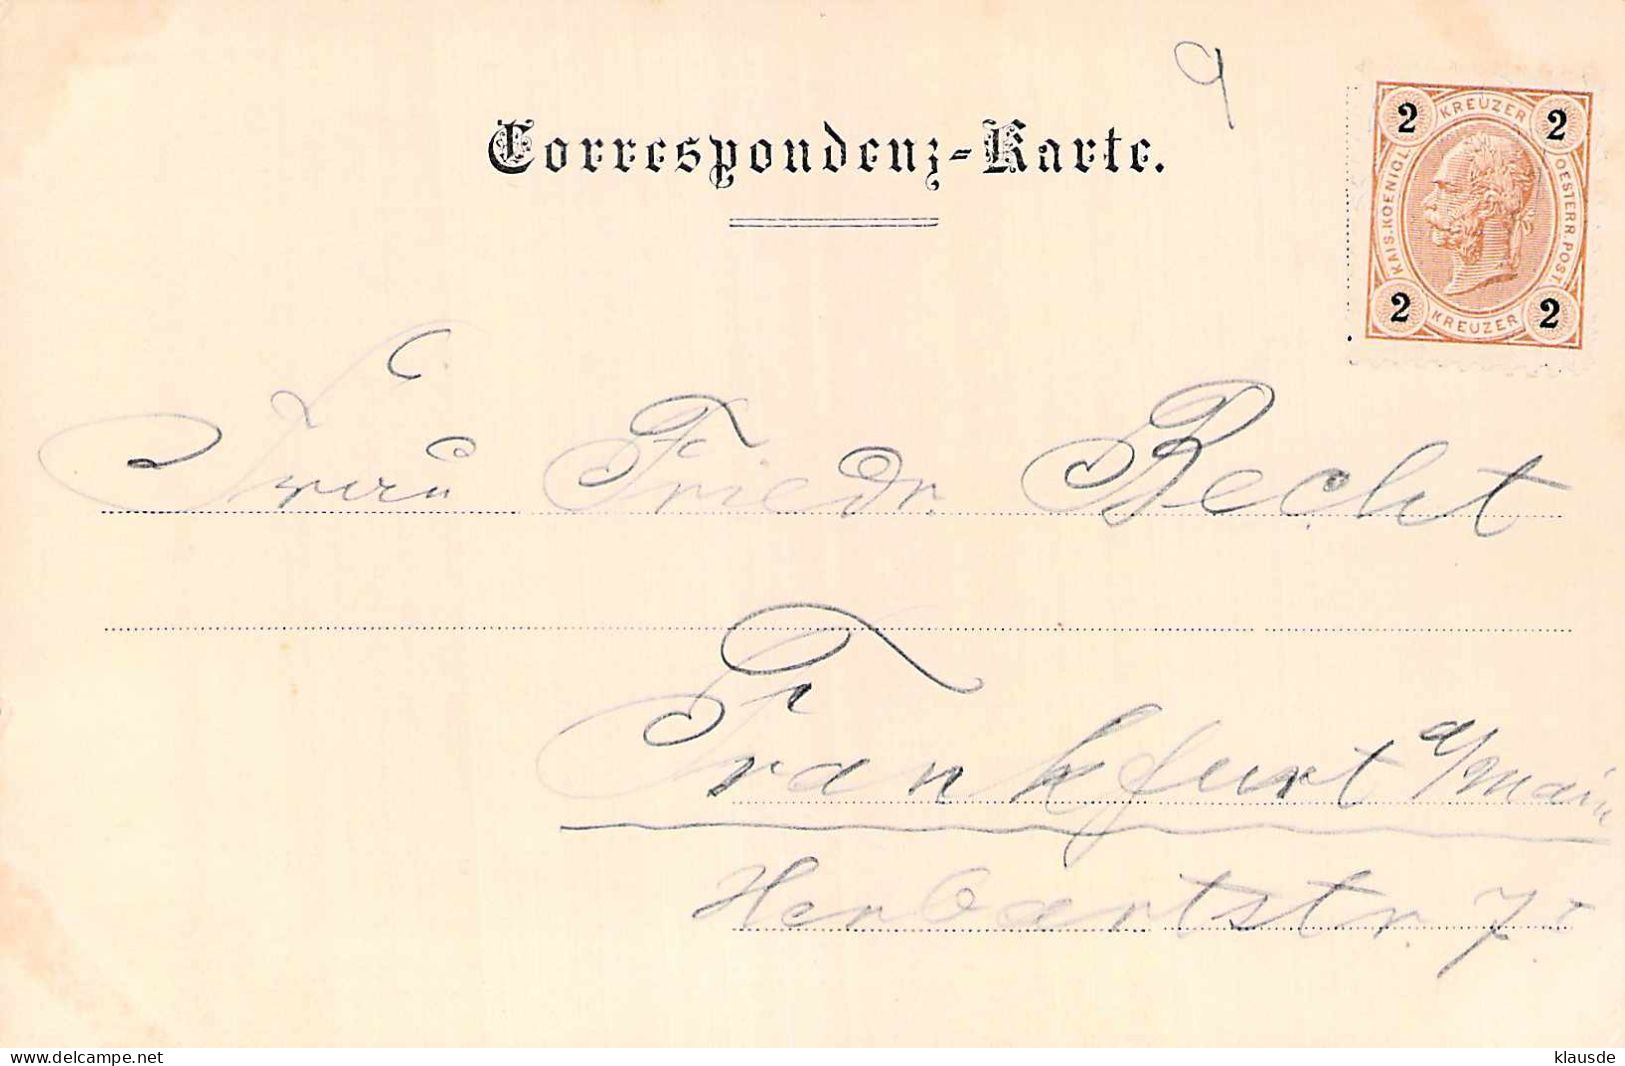 9
Correspondenz-Karte.
2 KREUZER 2
KAIS. KOENIGL. OESTERR. POST
2 KREUZER 2
Frau Friedr. Becht
Frankfurt a/Main
Herbartstr. 7.
www.delcampe.net
klausde